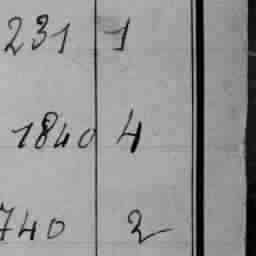 231 1
1840 4
740 2